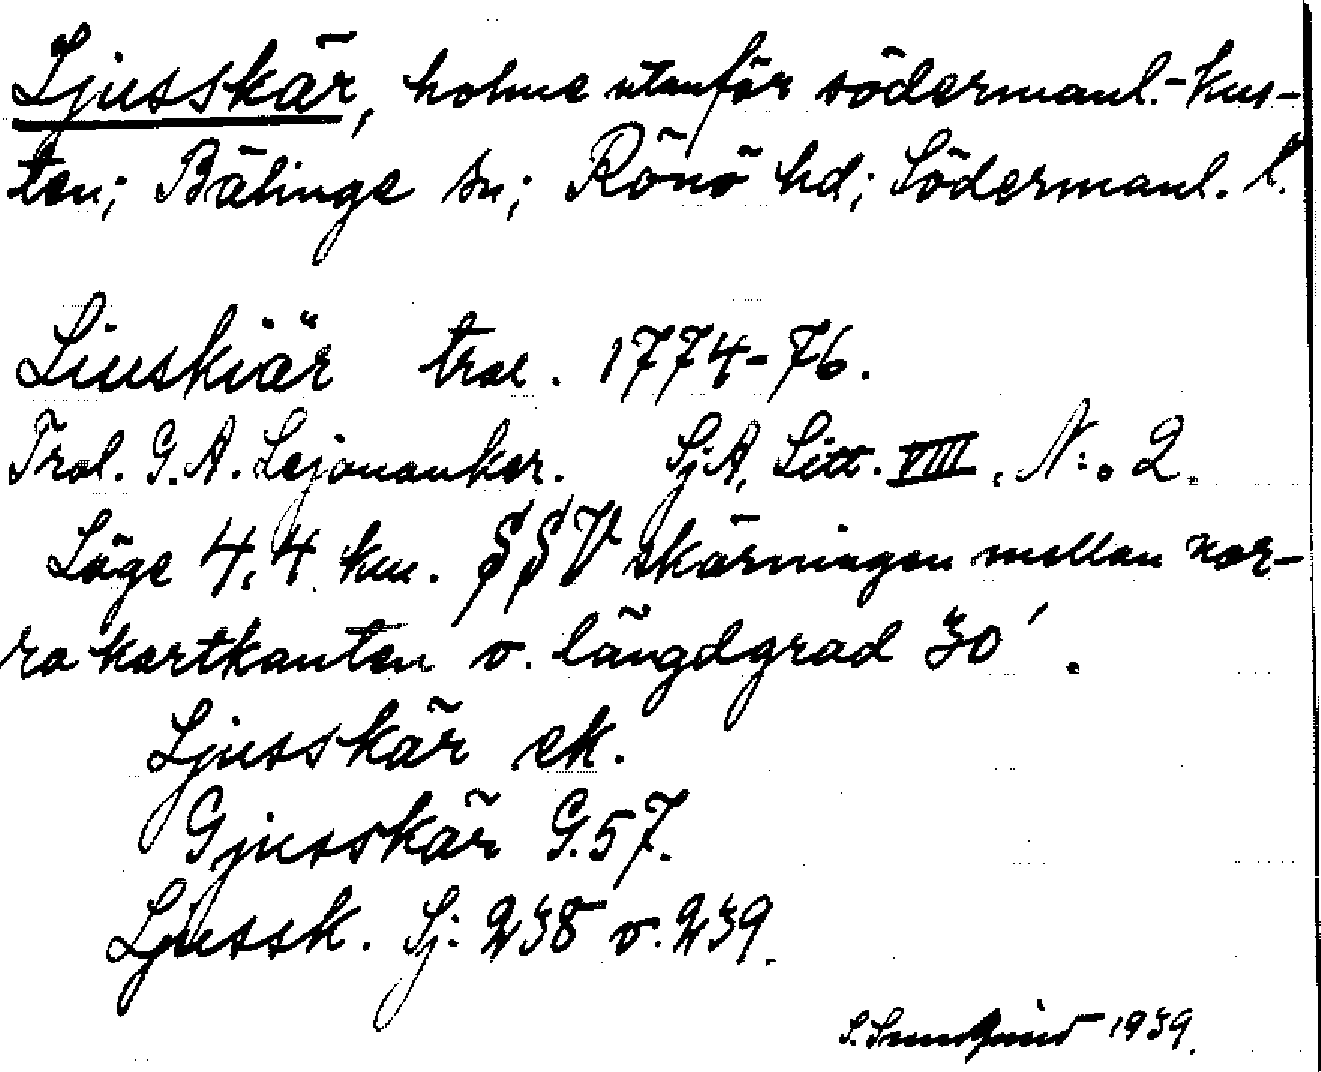 Ljusskär, holme utanför södermanl.-kus-
ten; Bälinge sn; Rönö hd; Södermanl. l.
Liuskiär trol. 1774-76.
Trol. G. A. Lejonanker. Sj.A. Litt. VIII. N:o 2.
Läge 4,4 km. SSV skärningen mellan nor-
ra kartkanten o. längdgrad 30'.
Ljusskär ek.
Gjusskär G.57.
Ljussk. Sj: 238 o. 239.
1939.